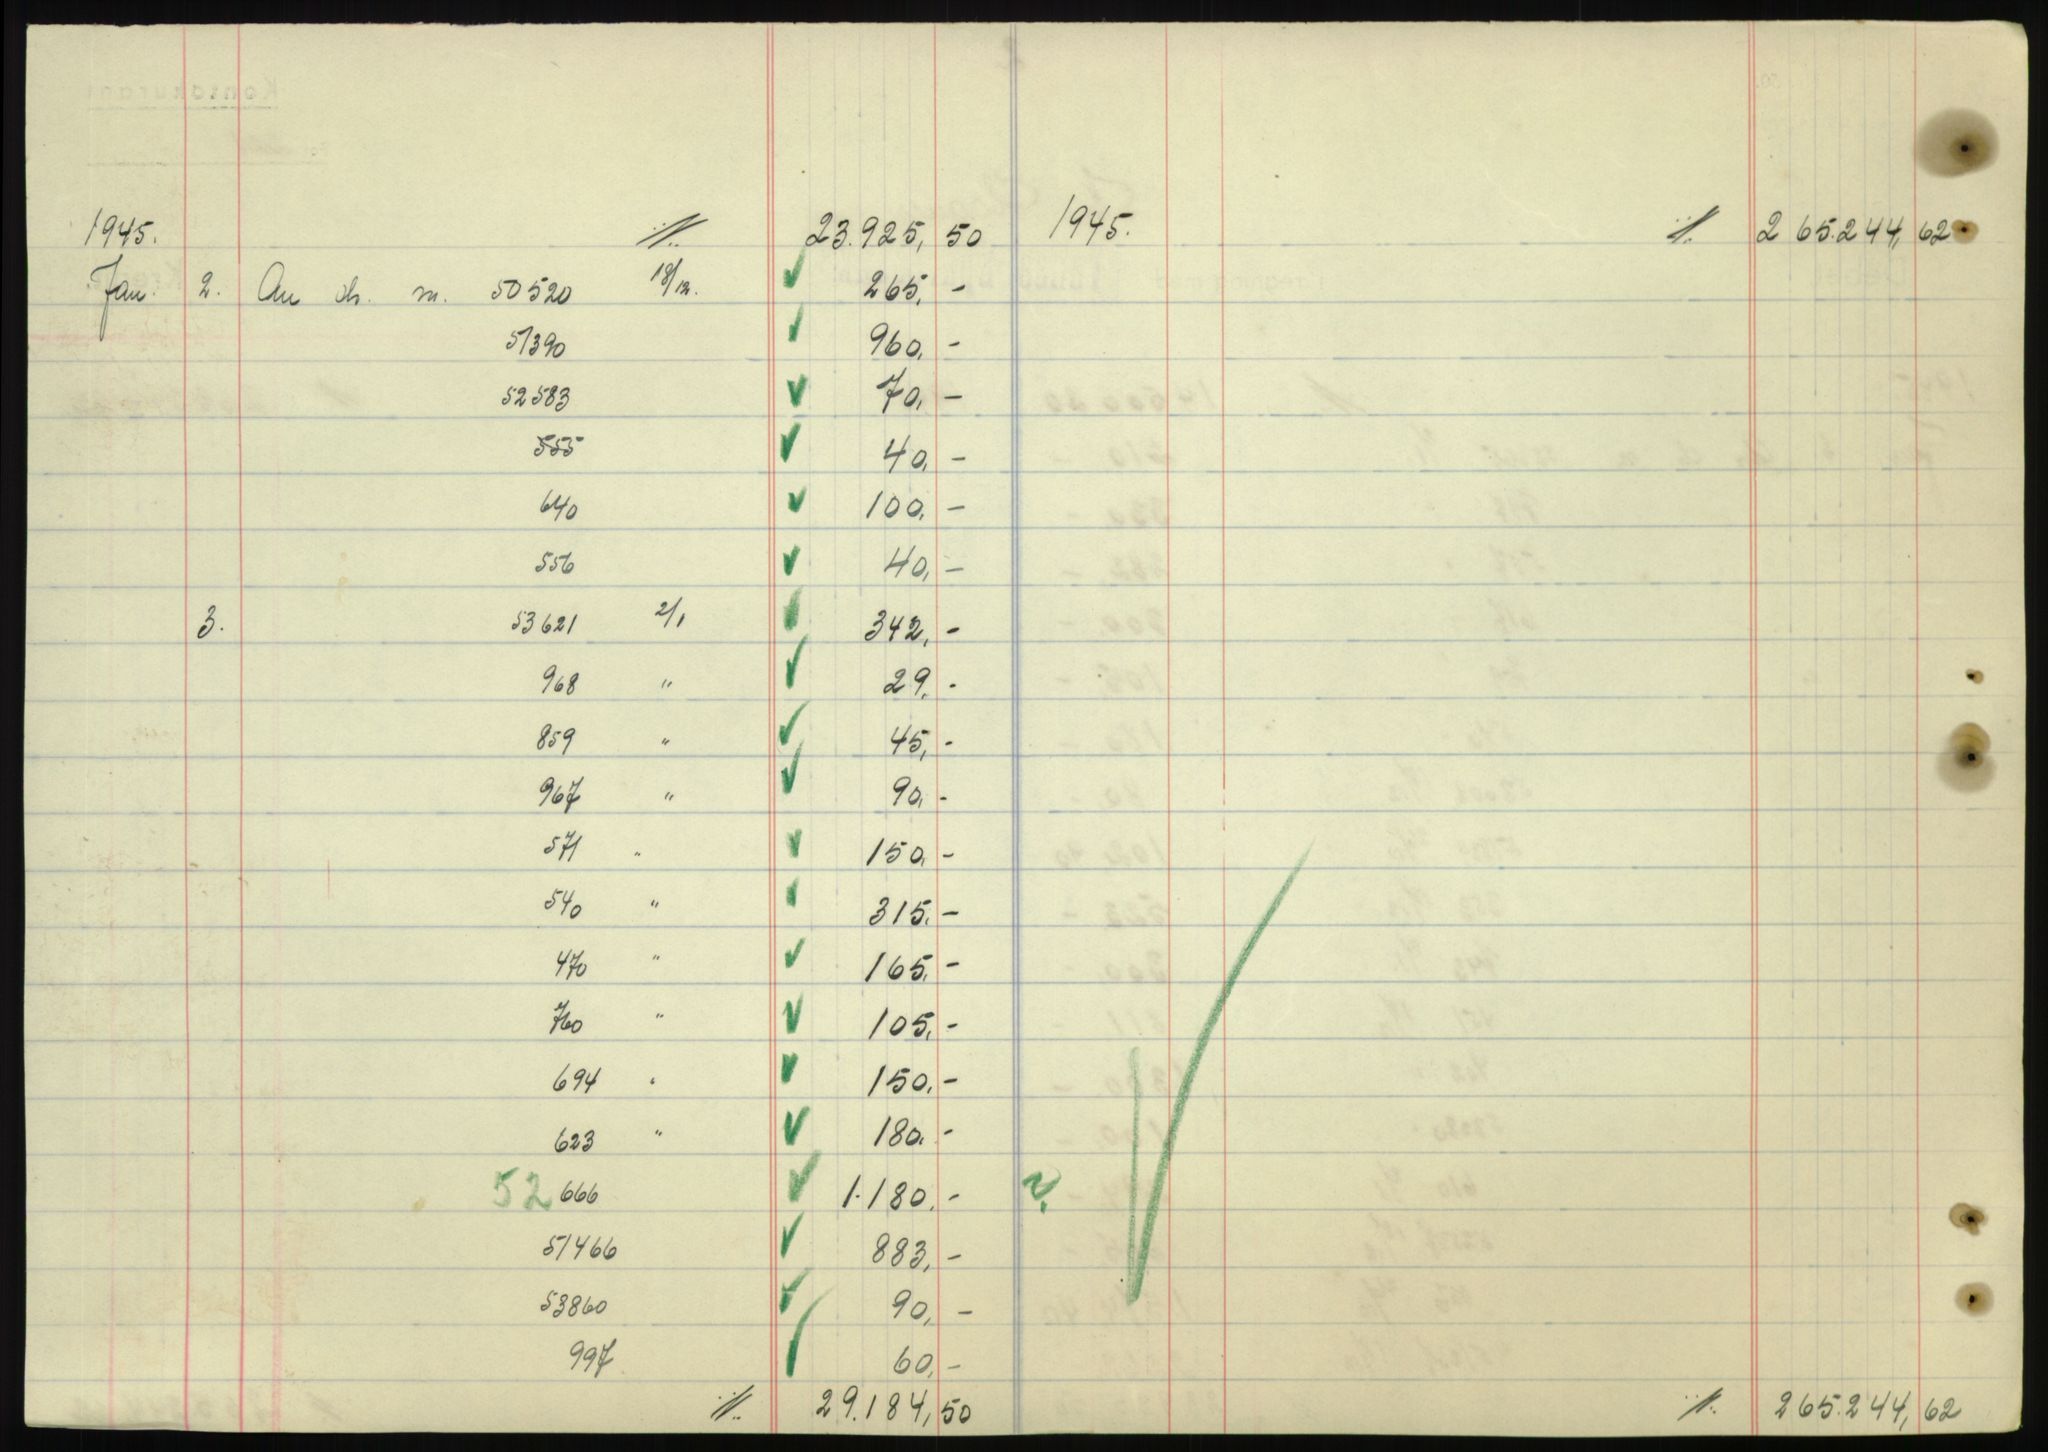 1945. ·/. 23.925,50
Jan. 2. An ch. m. 50520 18/12. 265,-
51390 960,-
52583 70,-
555 40,-
640 100,-
556 40,-
3. 53621 2/1 342,-
968 " 29,-
859 " 45,-
967 " 90,-
571 " 150,-
540 " 315,-
470 " 165,-
760 " 105,-
694 " 150,-
623 " 180,-
52 666 1.180,-
51466 883,-
53860 90,-
997 60,-
·/. 29.184,50
1945. ·/. 265.244,62
·/. 265.244,62